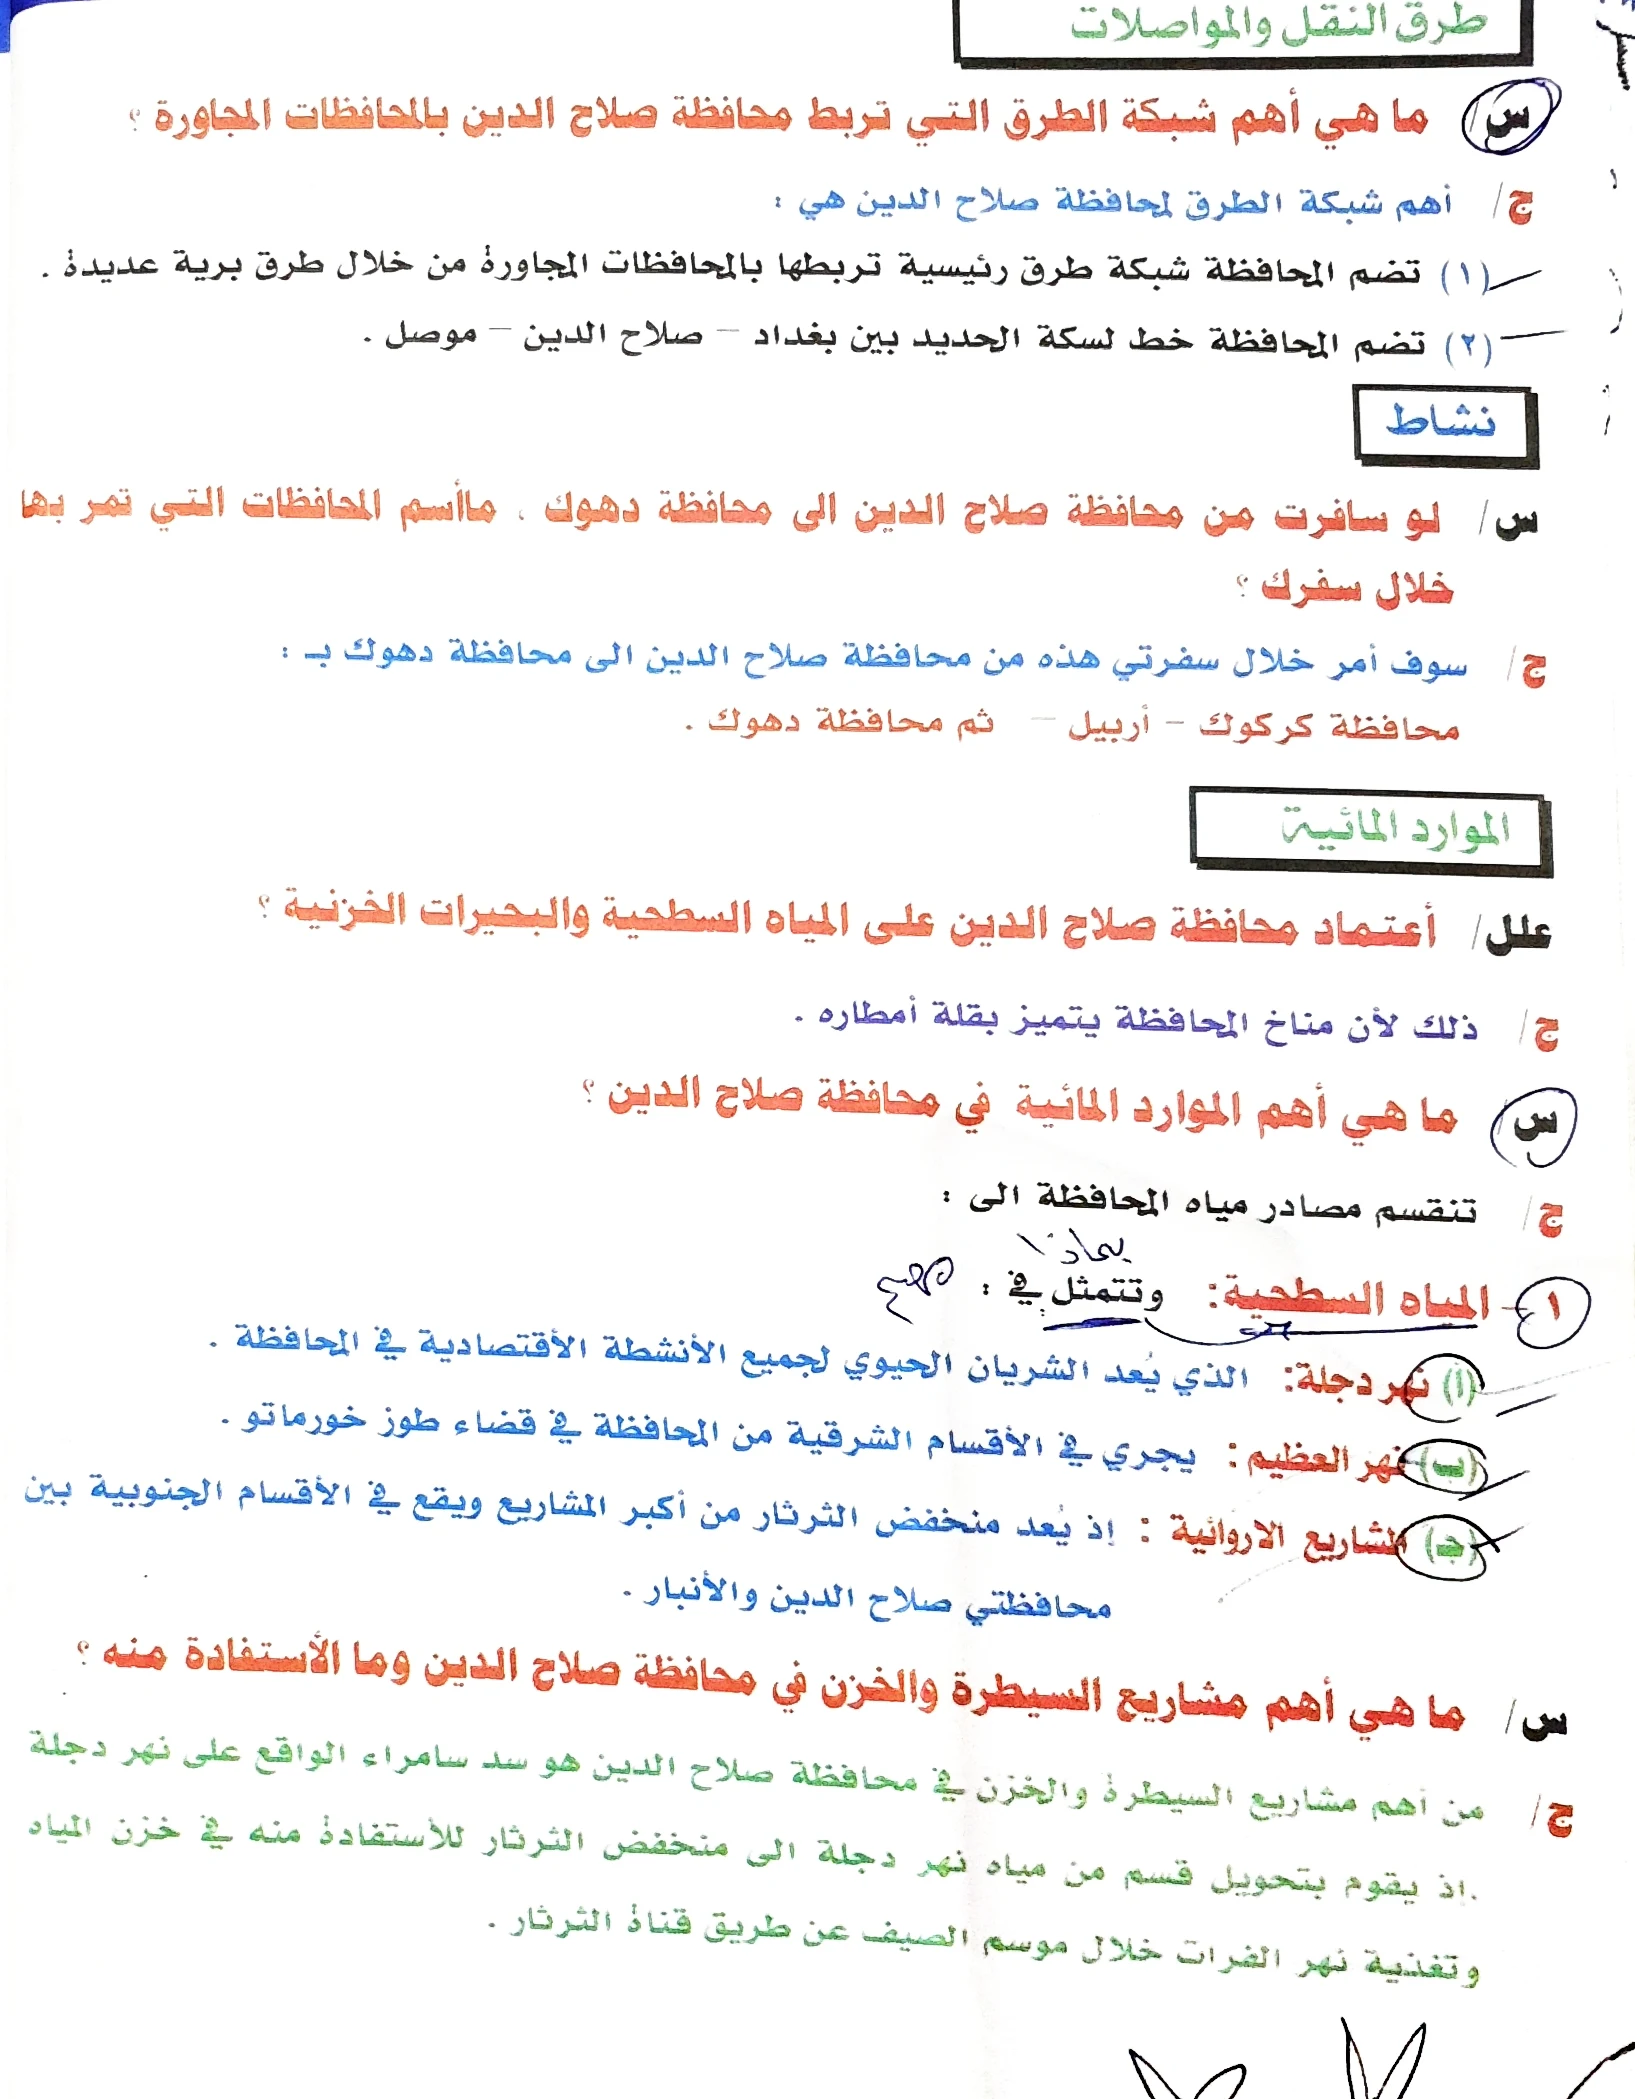 طرق النقل والمواصلات
س/ ما هي أهم شبكة الطرق التي تربط محافظة صلاح الدين بالمحافظات المجاورة ؟
ج/ أهم شبكة الطرق لمحافظة صلاح الدين هي :
(١) تضم المحافظة شبكة طرق رئيسية تربطها بالمحافظات المجاورة من خلال طرق برية عديدة .
(٢) تضم المحافظة خط لسكة الحديد بين بغداد – صلاح الدين – موصل .
نشاط
س/ لو سافرت من محافظة صلاح الدين الى محافظة دهوك . ماأسم المحافظات التي تمر بها
خلال سفرك ؟
ج/ سوف أمر خلال سفرتي هذه من محافظة صلاح الدين الى محافظة دهوك بـ :
محافظة كركوك – أربيل – ثم محافظة دهوك .
الموارد المائية
علل/ أعتماد محافظة صلاح الدين على المياه السطحية والبحيرات الخزنية ؟
ج/ ذلك لأن مناخ المحافظة يتميز بقلة أمطاره .
س/ ما هي أهم الموارد المائية في محافظة صلاح الدين ؟
ج/ تنقسم مصادر مياه المحافظة الى :
بماذا
١- المياه السطحية: وتتمثل في :
(أ) نهر دجلة: الذي يُعد الشريان الحيوي لجميع الأنشطة الأقتصادية في المحافظة .
(ب) نهر العظيم : يجري في الأقسام الشرقية من المحافظة في قضاء طوز خورماتو .
(جـ) المشاريع الاروائية : إذ يُعد منخفض الثرثار من أكبر المشاريع ويقع في الأقسام الجنوبية بين
محافظتي صلاح الدين والأنبار .
س/ ما هي أهم مشاريع السيطرة والخزن في محافظة صلاح الدين وما الأستفادة منه ؟
ج/ من أهم مشاريع السيطرة والخزن في محافظة صلاح الدين هو سد سامراء الواقع على نهر دجلة
.إذ يقوم بتحويل قسم من مياه نهر دجلة الى منخفض الثرثار للأستفادة منه في خزن المياه
وتغذية نهر الفرات خلال موسم الصيف عن طريق قناة الثرثار .